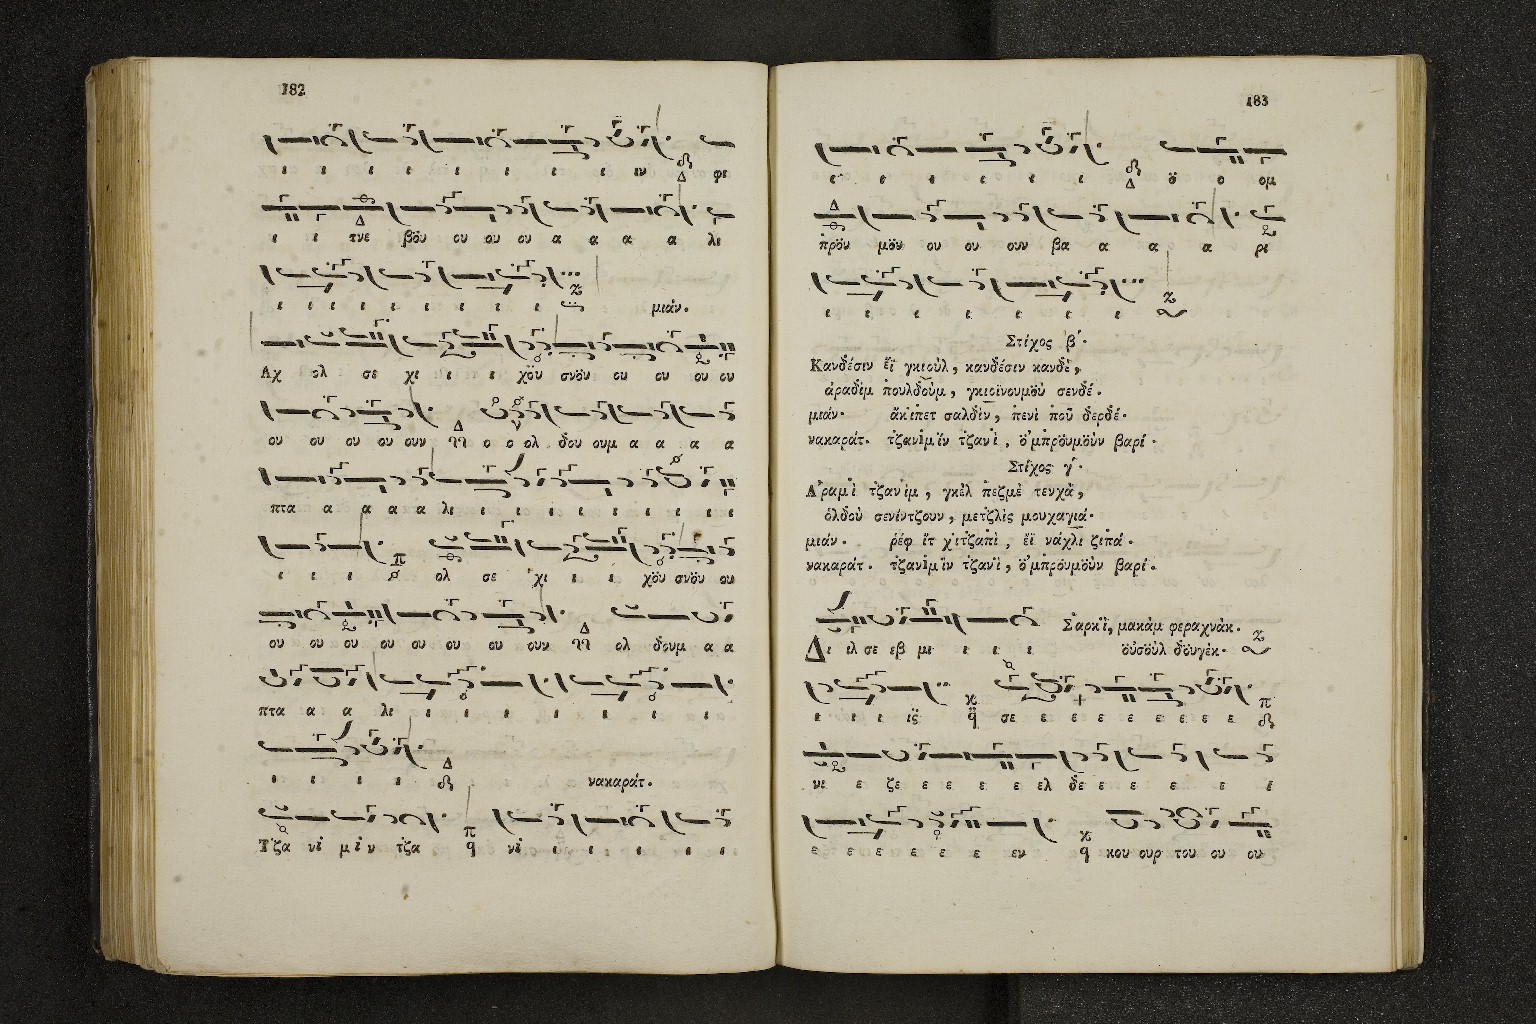 182
ι ι ι ι ι ι ι ι ιν φι
ι ι τνε βὄυ ου ου ου α α α α λι
ι ι ι ι ι ι ι ι ι μιάν.
Αχ ολ σε χι ι ι χὄυ σνὄυ ου ου ου ου
ου ου ου ου ουν ο ο ολ δου ουμ α α α α
πτα α α α α λι ι ι ι ι ι ι ι ι ι
ι ι ι ολ σε χι ι ι χὄυ σνὄυ ου
ου ου ου ου ου ου ου ουν ολ δουμ α α
πτα α α λι ι ι ι ι ι ι ι ι
ι ι ι ι νακαράτ.
Τζα νὶ μὶν τζα νὶ ι ι ι ι ι
183
ι ι ι ι ι ι ὄ ο ομ
πρὄυ μὄυ ου ου ουν βα α α α ρι
ι ι ι ι ι ι ι
Στίχος β΄.
Κανδέσιν ἔϊ γκιοὺλ, κανδέσιν κανδὲ,
ἀραδὶμ πουλδοὺμ, γκιοϊνουμὄυ σενδέ.
μιάν. ἄκιπετ σαλδὶν, πενὶ ποῦ δερδέ.
νακαράτ. τζανὶμ ἲν τζανὶ, ὄμπρὄυμὄυν βαρί.
Στίχος γ΄.
Ἀραμὶ τζανὶμ, γκὲλ πεζμὲ τενχᾶ,
ὀλδοὺ σενίντζουν, μετζλὶς μουχαγιά.
μιάν. ῥὲφ ἲτ χιτζαπὶ, ἔϊ νάχλι ζιπά.
νακαράτ. τζανὶμ ἲν τζανὶ, ὄμπρουμὄυν βαρί.
Σαρκὶ, μακὰμ φεραχνάκ.
Δι ιλ σε εβ μι ι ι ι οὐσοὺλ δὄυγέκ.
ι ι ι ιζ σε ε ε ε ε ε ε ε ε
νι ε ζε ε ε ε ε ελ δε ε ε ε ε ε
ε ε ε ε ε ε εν κου ουρ του ου ου